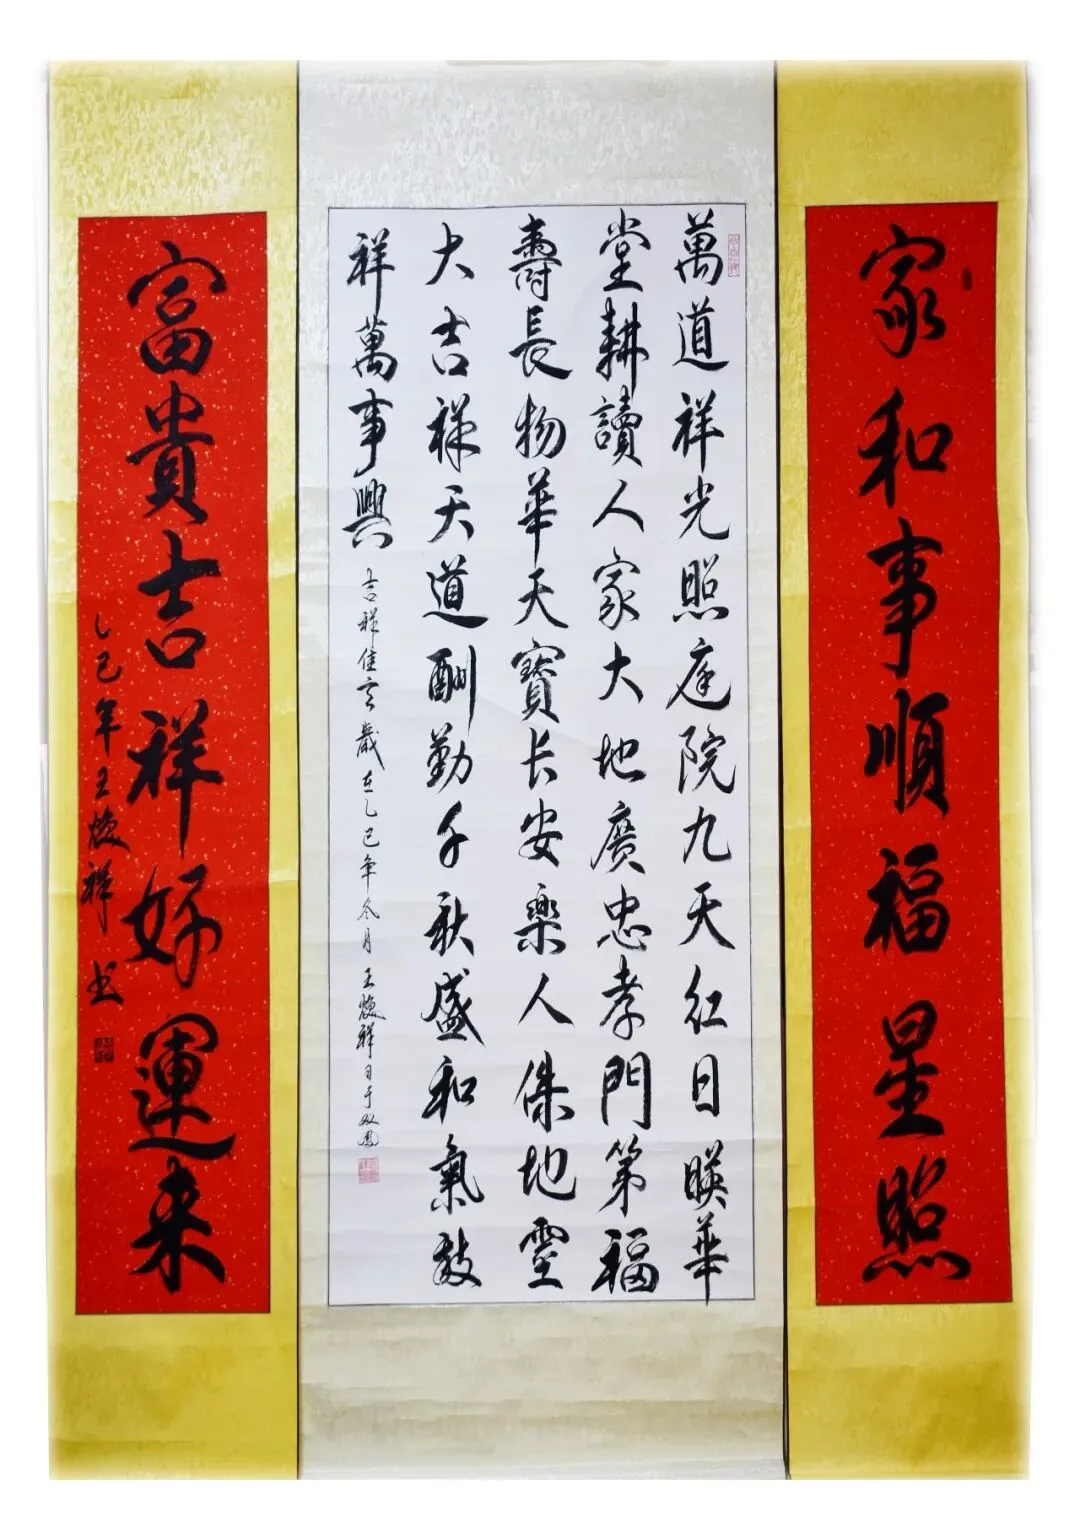 家和事順福星照
萬道祥光照庭院九天紅日暎華
堂耕讀人家大地廣忠孝門第福
壽長物華天寶长安樂人傑地靈
大吉祥天道酬勤千秋盛和氣致
祥萬事興
吉祥佳言歲在乙巳年冬月王焕祥書于双鳳
富貴吉祥好運来
乙巳年王焕祥书